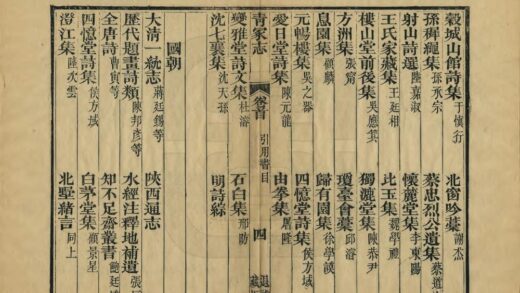 穀城山館詩集 于慎行 北窗吟藁
孫稗繩集 孫承宗 蔡忠烈公遺集 蔡道
射山詩選 陸嘉淑 懷麓堂集 李東陽
王氏家藏集 王廷相 比玉集 魏學禮
樓山堂前後集 吳應箕 獨漉堂集 陳恭尹
方洲集 張甯 瓊臺會藁 邱濬
息園集 顧璘 歸有園集 徐學謨
元暢樓集 吳之器 四憶堂詩集 侯方域
愛日堂詩集 陳元龍 由拳集 屠隆
青冢志 卷首 引用書目 四
變雅堂詩文集 杜濬 石白集 邢昉
沈七襄集 沈天孫 明詩綜
國朝
大清一統志 蔣廷錫等 陝西通志
歷代題畫詩類 陳邦彥等 水經注釋地補遺 張
全唐詩 曹寅等 知不足齋叢書 鮑廷
四憶堂詩集 侯方域 白茅堂集 顧景星
澄江集 陸次雲 北墅緒言 同上